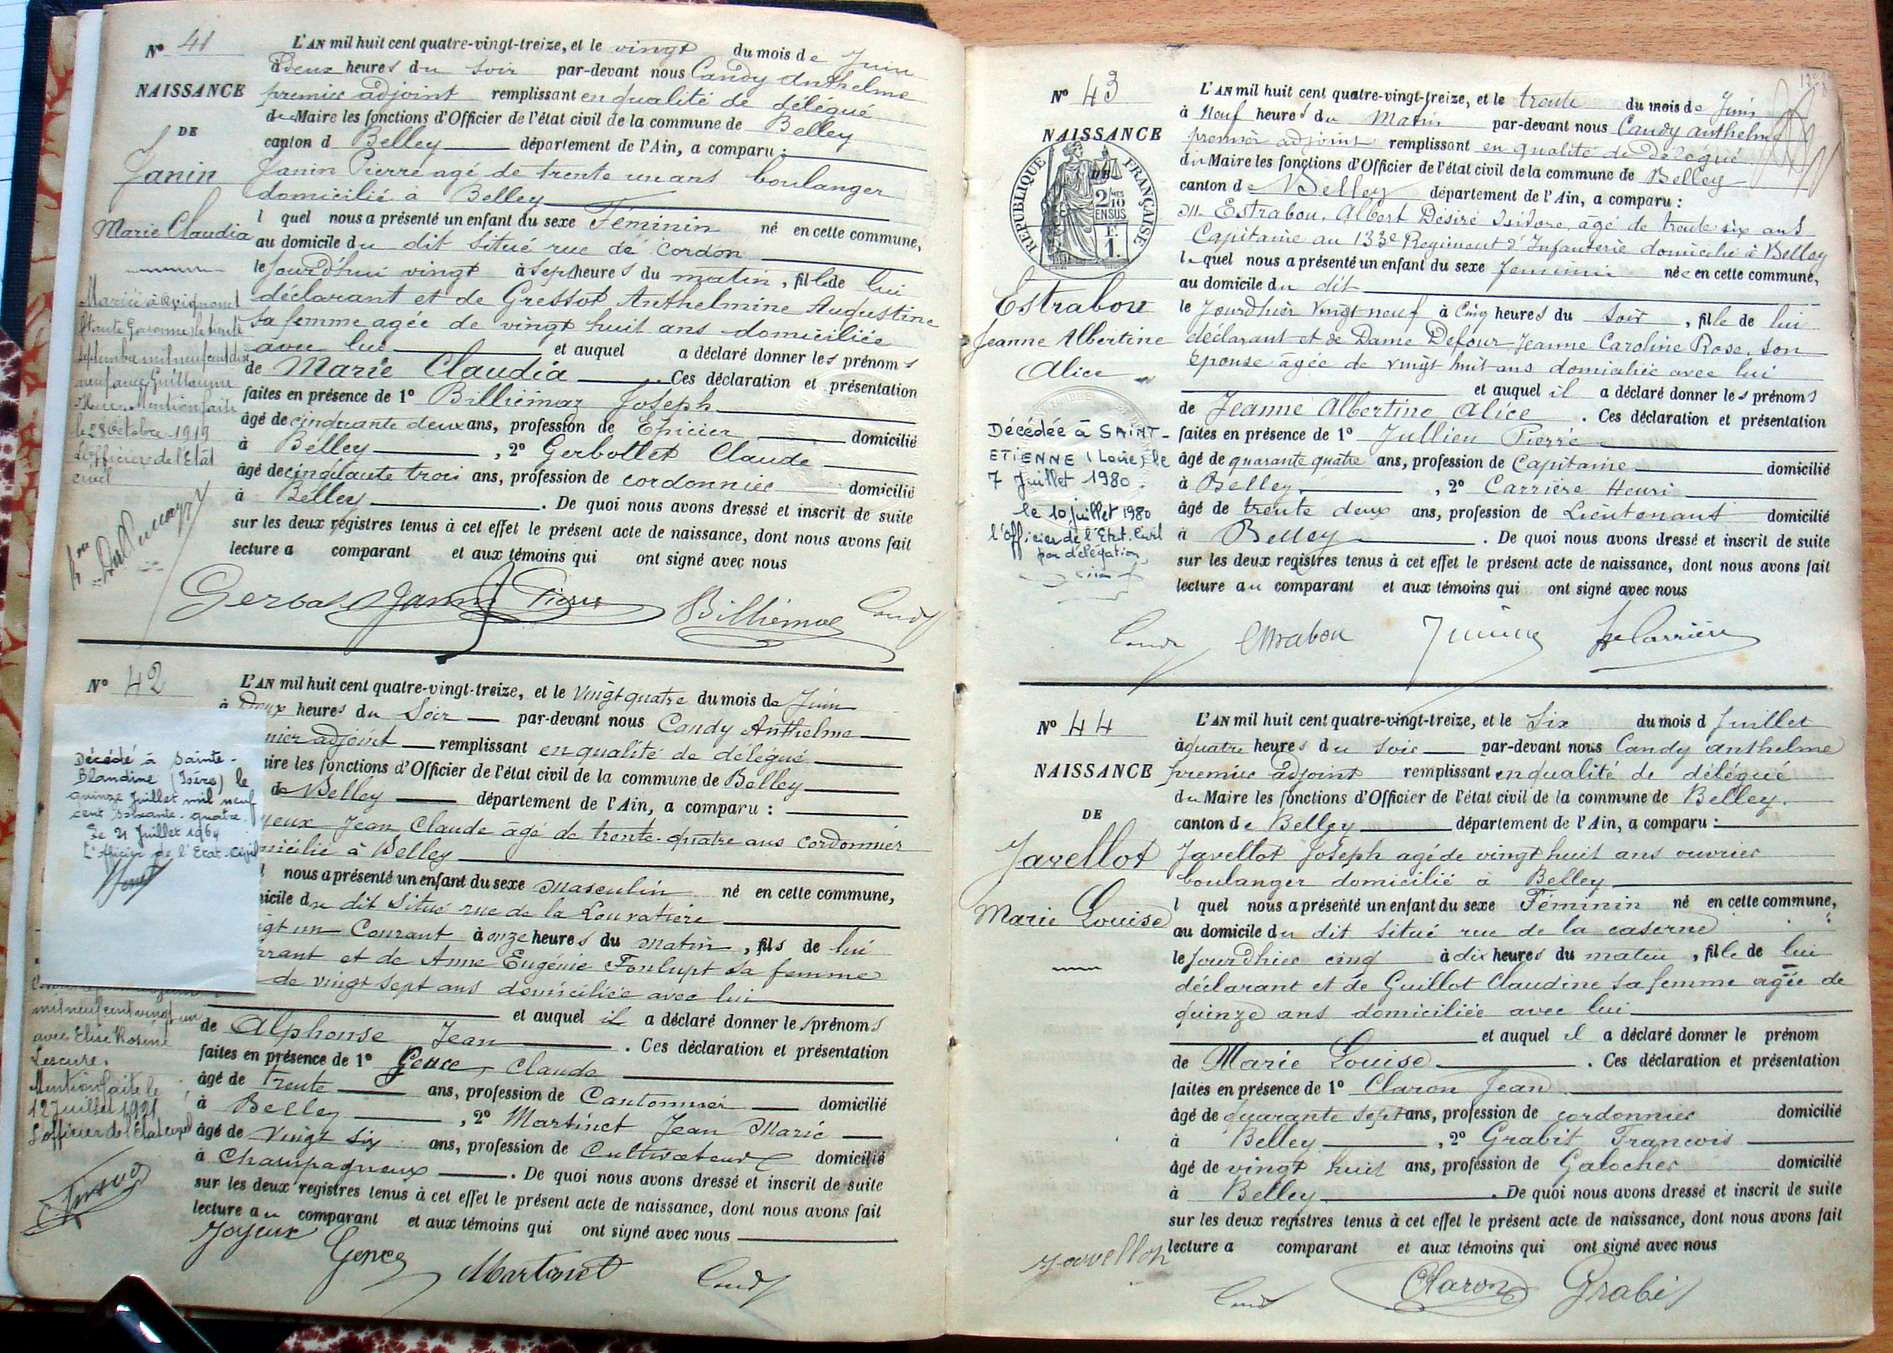 N° 41
NAISSANCE
DE
Janin
Marie Claudia
L'AN mil huit cent quatre-vingt-treize, et le vingt du mois de Juin
à Deux heures du soir par-devant nous Candy Anthelme
premier adjoint remplissant en qualité de délégué
du Maire les fonctions d'Officier de l'état civil de la commune de Belley
canton d Belley département de l'Ain, a comparu :
Janin Pierre agé de trente un ans boulanger
domicilié à Belley
l quel nous a présenté un enfant du sexe Féminin né en cette commune,
au domicile du dit situé rue de cordon
le jourd'hui vingt à sept heures du matin, fille de lui
déclarant et de Gressot Anthelmine Augustine
sa femme agée de vingt huit ans domiciliée
avec lui et auquel a déclaré donner les prénoms
de Marie Claudia Ces déclaration et présentation
faites en présence de 1° Billiémaz Joseph
âgé de cinquante deux ans, profession de Epicier domicilié
à Belley, 2° Gerbollet Claude
âgé de cinquante trois ans, profession de cordonnier domicilié
à Belley. De quoi nous avons dressé et inscrit de suite
sur les deux registres tenus à cet effet le présent acte de naissance, dont nous avons fait
lecture a comparant et aux témoins qui ont signé avec nous
Mariée à Avignonet
Haute Garonne le trente
septembre mil neuf cent dix
neuf avec Guillaume
Mention faite
le 28 octobre 1919
L'officier de l'Etat
civil
Janin Pierre Billiémaz Candy
N° 42
L'AN mil huit cent quatre-vingt-treize, et le vingt quatre du mois de Juin
à Deux heures du Soir par-devant nous Candy Anthelme
mier adjoint remplissant en qualité de délégué
aire les fonctions d'Officier de l'état civil de la commune de Belley
de Belley département de l'Ain, a comparu :
yeux Jean Claude âgé de trente-quatre ans cordonnier
micilié à Belley
nous a présenté un enfant du sexe masculin né en cette commune,
icile du dit situé rue de la Louvatière
gt un Courant à onze heures du matin, fils de lui
rant et de Anne Eugénie Foulupt sa femme
de vingt sept ans domiciliée avec lui
et auquel il a déclaré donner les prénoms
de Alphonse Jean. Ces déclaration et présentation
faites en présence de 1° Gence, Claude
âgé de Trente ans, profession de Cantonnier domicilié
à Belley, 2° Martinet Jean Marie
âgé de vingt six ans, profession de Cultivateur domicilié
à Champagneux. De quoi nous avons dressé et inscrit de suite
sur les deux registres tenus à cet effet le présent acte de naissance, dont nous avons fait
lecture au comparant et aux témoins qui ont signé avec nous
Décédé à Sainte-
Blandine (Isère) le
quinze Juillet mil neuf
cent soixante-quatre
Le 21 Juillet 1964
L'Officier de l'Etat-Civil
mil neuf cent vingt un
avec Elise Rosine
Lescure.
Mention faite le
12 Juillet 1921
L'officier de l'Etat civil
Joyeux Gence Martinet Candy
N° 43
NAISSANCE
DE
RÉPUBLIQUE FRANÇAISE
2 10 EN SUS
1.
Estrabou
Jeanne Albertine
Alice
L'AN mil huit cent quatre-vingt-treize, et le trente du mois de Juin
à Neuf heures du Matin par-devant nous Candy Anthelme
premier adjoint remplissant en qualité de Délégué
du Maire les fonctions d'Officier de l'état civil de la commune de Belley
canton de Belley département de l'Ain, a comparu :
M. Estrabou, Albert Désiré Isidore, âgé de trente six ans
Capitaine au 133e Régiment d'Infanterie domicilié à Belley
lequel nous a présenté un enfant du sexe féminin née en cette commune,
au domicile du dit
le Jourd'hier Vingt neuf à Cinq heures du soir, fille de lui
déclarant et de Dame Defour Jeanne Caroline Rose, son
épouse âgée de vingt huit ans domiciliée avec lui
et auquel il a déclaré donner les prénoms
de Jeanne Albertine Alice. Ces déclaration et présentation
faites en présence de 1° Jullien Pierre
âgé de quarante quatre ans, profession de Capitaine domicilié
à Belley, 2° Carrière Henri
âgé de trente deux ans, profession de Lieutenant domicilié
à Belley. De quoi nous avons dressé et inscrit de suite
sur les deux registres tenus à cet effet le présent acte de naissance, dont nous avons fait
lecture au comparant et aux témoins qui ont signé avec nous
Décédée à SAINT-
ETIENNE (Loire) le
7 Juillet 1980.
le 10 juillet 1980
l'Officier de l'Etat-Civil
par délégation,
Candy Estrabou Jullien H Carrière
N° 44
NAISSANCE
DE
Javellot
Marie Louise
L'AN mil huit cent quatre-vingt-treize, et le Six du mois d Juillet
à quatre heures du soir par-devant nous Candy Anthelme
premier adjoint remplissant en qualité de délégué
du Maire les fonctions d'Officier de l'état civil de la commune de Belley.
canton de Belley département de l'Ain, a comparu :
Javellot Joseph agé de vingt huit ans ouvrier
boulanger domicilié à Belley
l quel nous a présenté un enfant du sexe Féminin né en cette commune,
au domicile du dit situé rue de la caserne
le jourd'hier cinq à dix heures du matin, fille de lui
déclarant et de Guillot Claudine sa femme agée de
quinze ans domiciliée avec lui
et auquel il a déclaré donner le prénom
de Marie Louise. Ces déclaration et présentation
faites en présence de 1° Claron Jean
âgé de quarante sept ans, profession de cordonnier domicilié
à Belley, 2° Grabit Francois
âgé de vingt huit ans, profession de Galocher domicilié
à Belley. De quoi nous avons dressé et inscrit de suite
sur les deux registres tenus à cet effet le présent acte de naissance, dont nous avons fait
lecture a comparant et aux témoins qui ont signé avec nous
Javellot Candy Claron Grabit